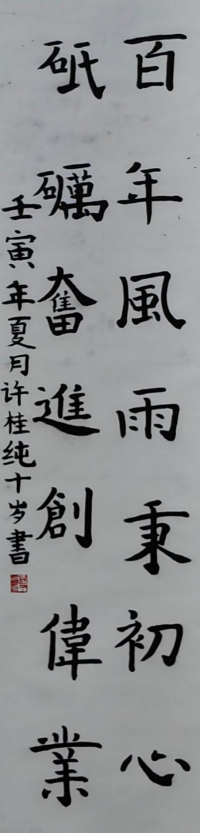 百年風雨秉初心
砥礪奮進創偉業
壬寅年夏月许桂纯十岁書